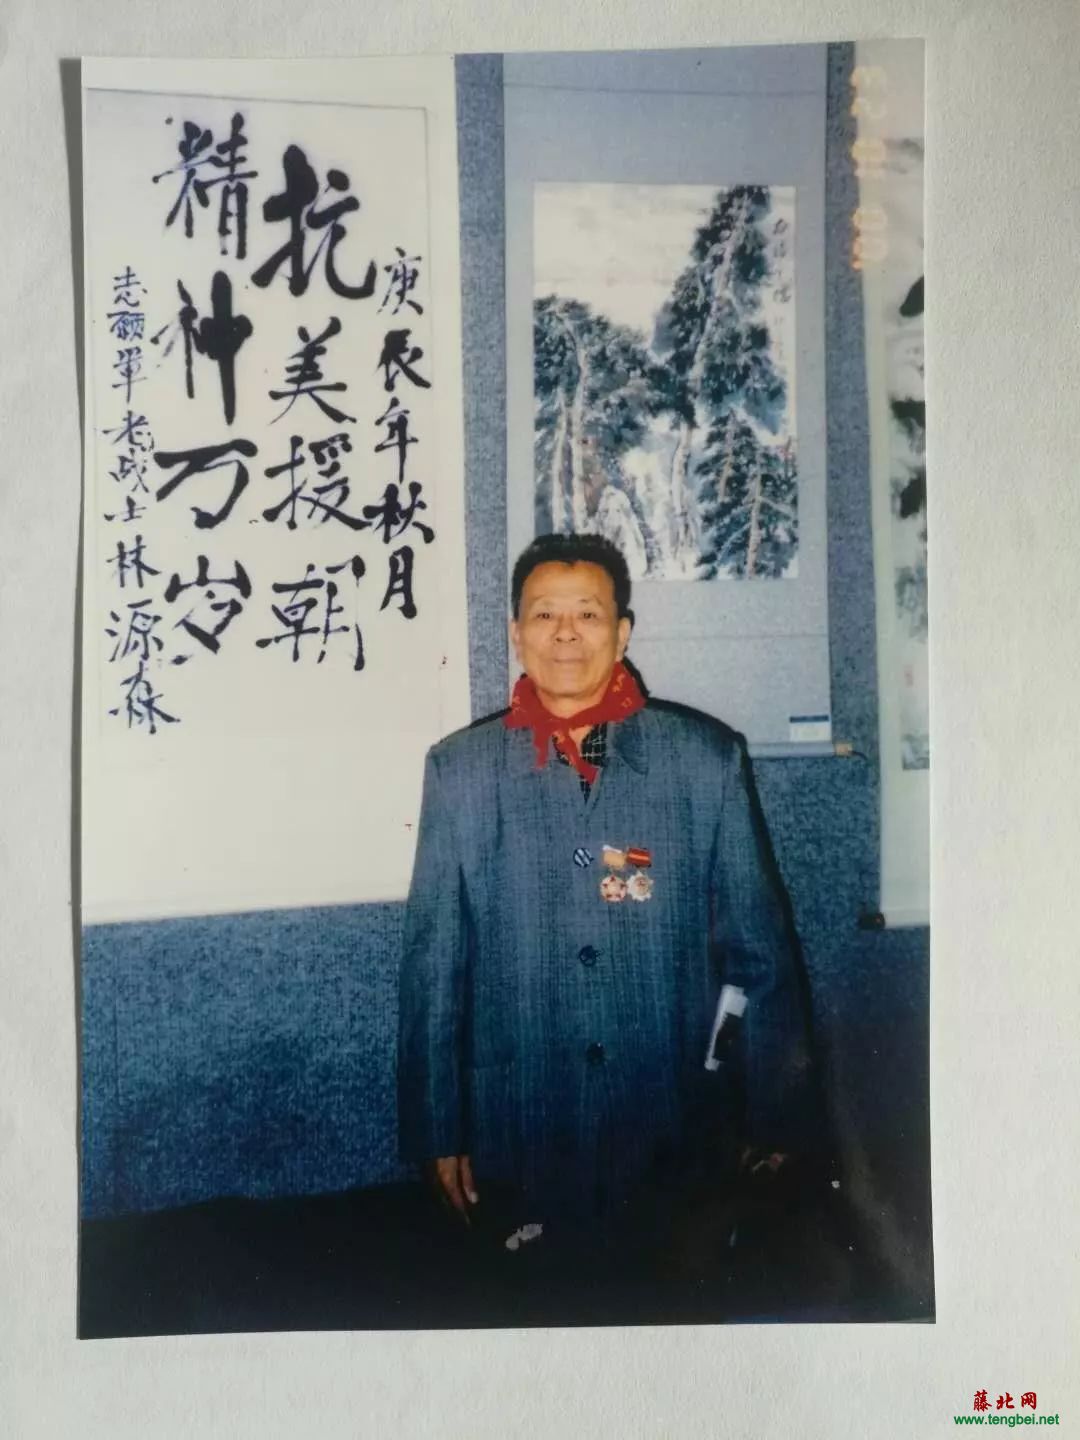 庚辰年秋月
抗美援朝
精神万岁
志願軍老战士林源森
藤北网
www.tengbei.net